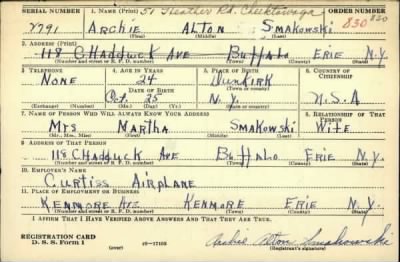 SERIAL NUMBER 1. NAME (Print) 51 Heather Rd. Cheektowaga ORDER NUMBER
2791 ARCHIE ALTON SMAKOWSKI 830 830
(First) (Middle) (Last)
2. ADDRESS (Print)
118 CHADDUCK AVE BUFFALO ERIE N.Y.
(Number and street or R. F. D. number) (Town) (County) (State)
3. TELEPHONE 4. AGE IN YEARS 5. PLACE OF BIRTH 6. COUNTRY OF CITIZENSHIP
NONE 24 DUNKIRK
DATE OF BIRTH (Town or county)
Oct. 25 N.Y. U.S.A
(Exchange) (Number) (Mo.) (Day) (Yr.) (State or country)
7. NAME OF PERSON WHO WILL ALWAYS KNOW YOUR ADDRESS 8. RELATIONSHIP OF THAT PERSON
MRS MARTHA SMAKOWSKI WIFE
(Mr., Mrs., Miss) (First) (Middle) (Last)
9. ADDRESS OF THAT PERSON
118 CHADDUCK AVE BUFFALO ERIE N.Y.
(Number and street or R. F. D. number) (Town) (County) (State)
10. EMPLOYER'S NAME
CURTISS AIRPLANE
11. PLACE OF EMPLOYMENT OR BUSINESS
KENMORE AVE. KENMORE ERIE N.Y.
(Number and street or R. F. D. number) (Town) (County) (State)
I AFFIRM THAT I HAVE VERIFIED ABOVE ANSWERS AND THAT THEY ARE TRUE.
REGISTRATION CARD
D. S. S. Form 1 (over) 16—17105 Archie Alton Smakowski
(Registrant's signature)